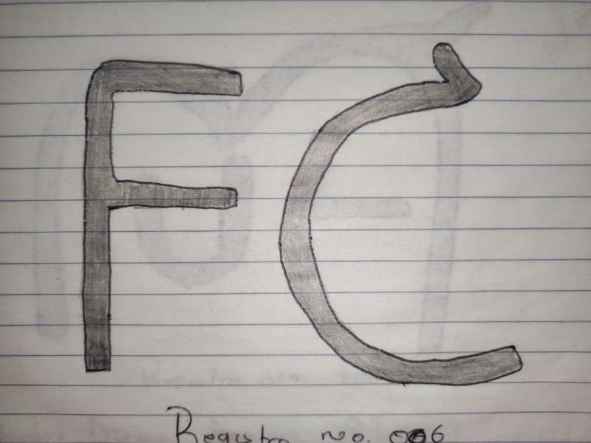 FC
Registro no. 006